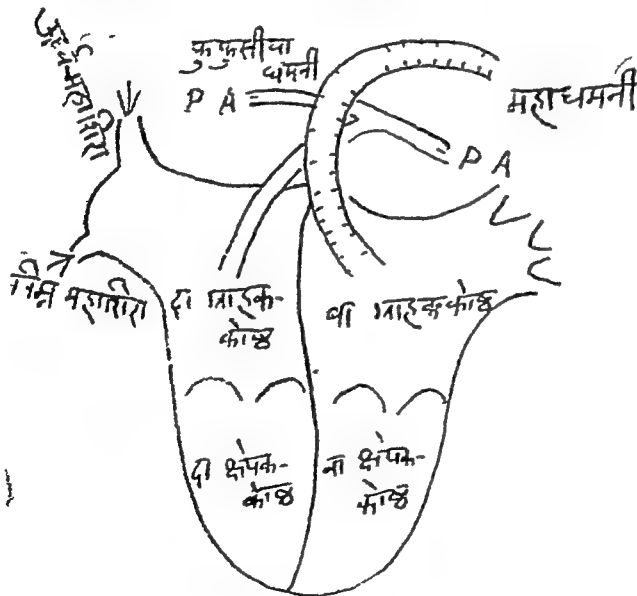 ऊर्ध्वं महाशिरा
फुफुसीया
धमनी
P A
महाधमनी
P A
निम्न महाशिरा
दा ग्राहक-
कोष्ठ
वा ग्राहककोष्ठ
दा क्षेपक-
कोष्ठ
वा क्षेपक-
कोष्ठ